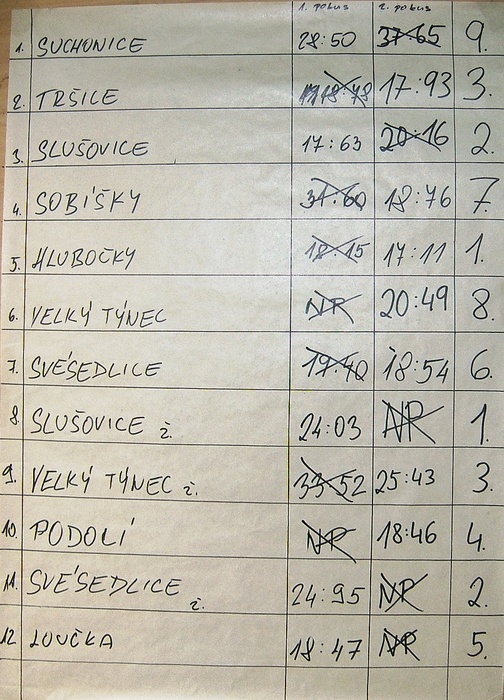 1. pokus 2. pokus
1. SUCHONICE 28:50 37:65 9.
2. TRŠICE 18:78 17:93 3.
3. SLUŠOVICE 17:63 20:16 2.
4. SOBÍŠKY 31:60 18:76 7.
5. HLUBOČKY 18:15 17:11 1.
6. VELKÝ TÝNEC NP 20:49 8.
7. SVÉSEDLICE 19:40 18:54 6.
8. SLUŠOVICE ž. 24:03 NP 1.
9. VELKÝ TÝNEC ž. 33:52 25:43 3.
10. PODOLÍ NP 18:46 4.
11. SVÉSEDLICE ž. 24:95 NP 2.
12 LOUČKA 18:47 NP 5.